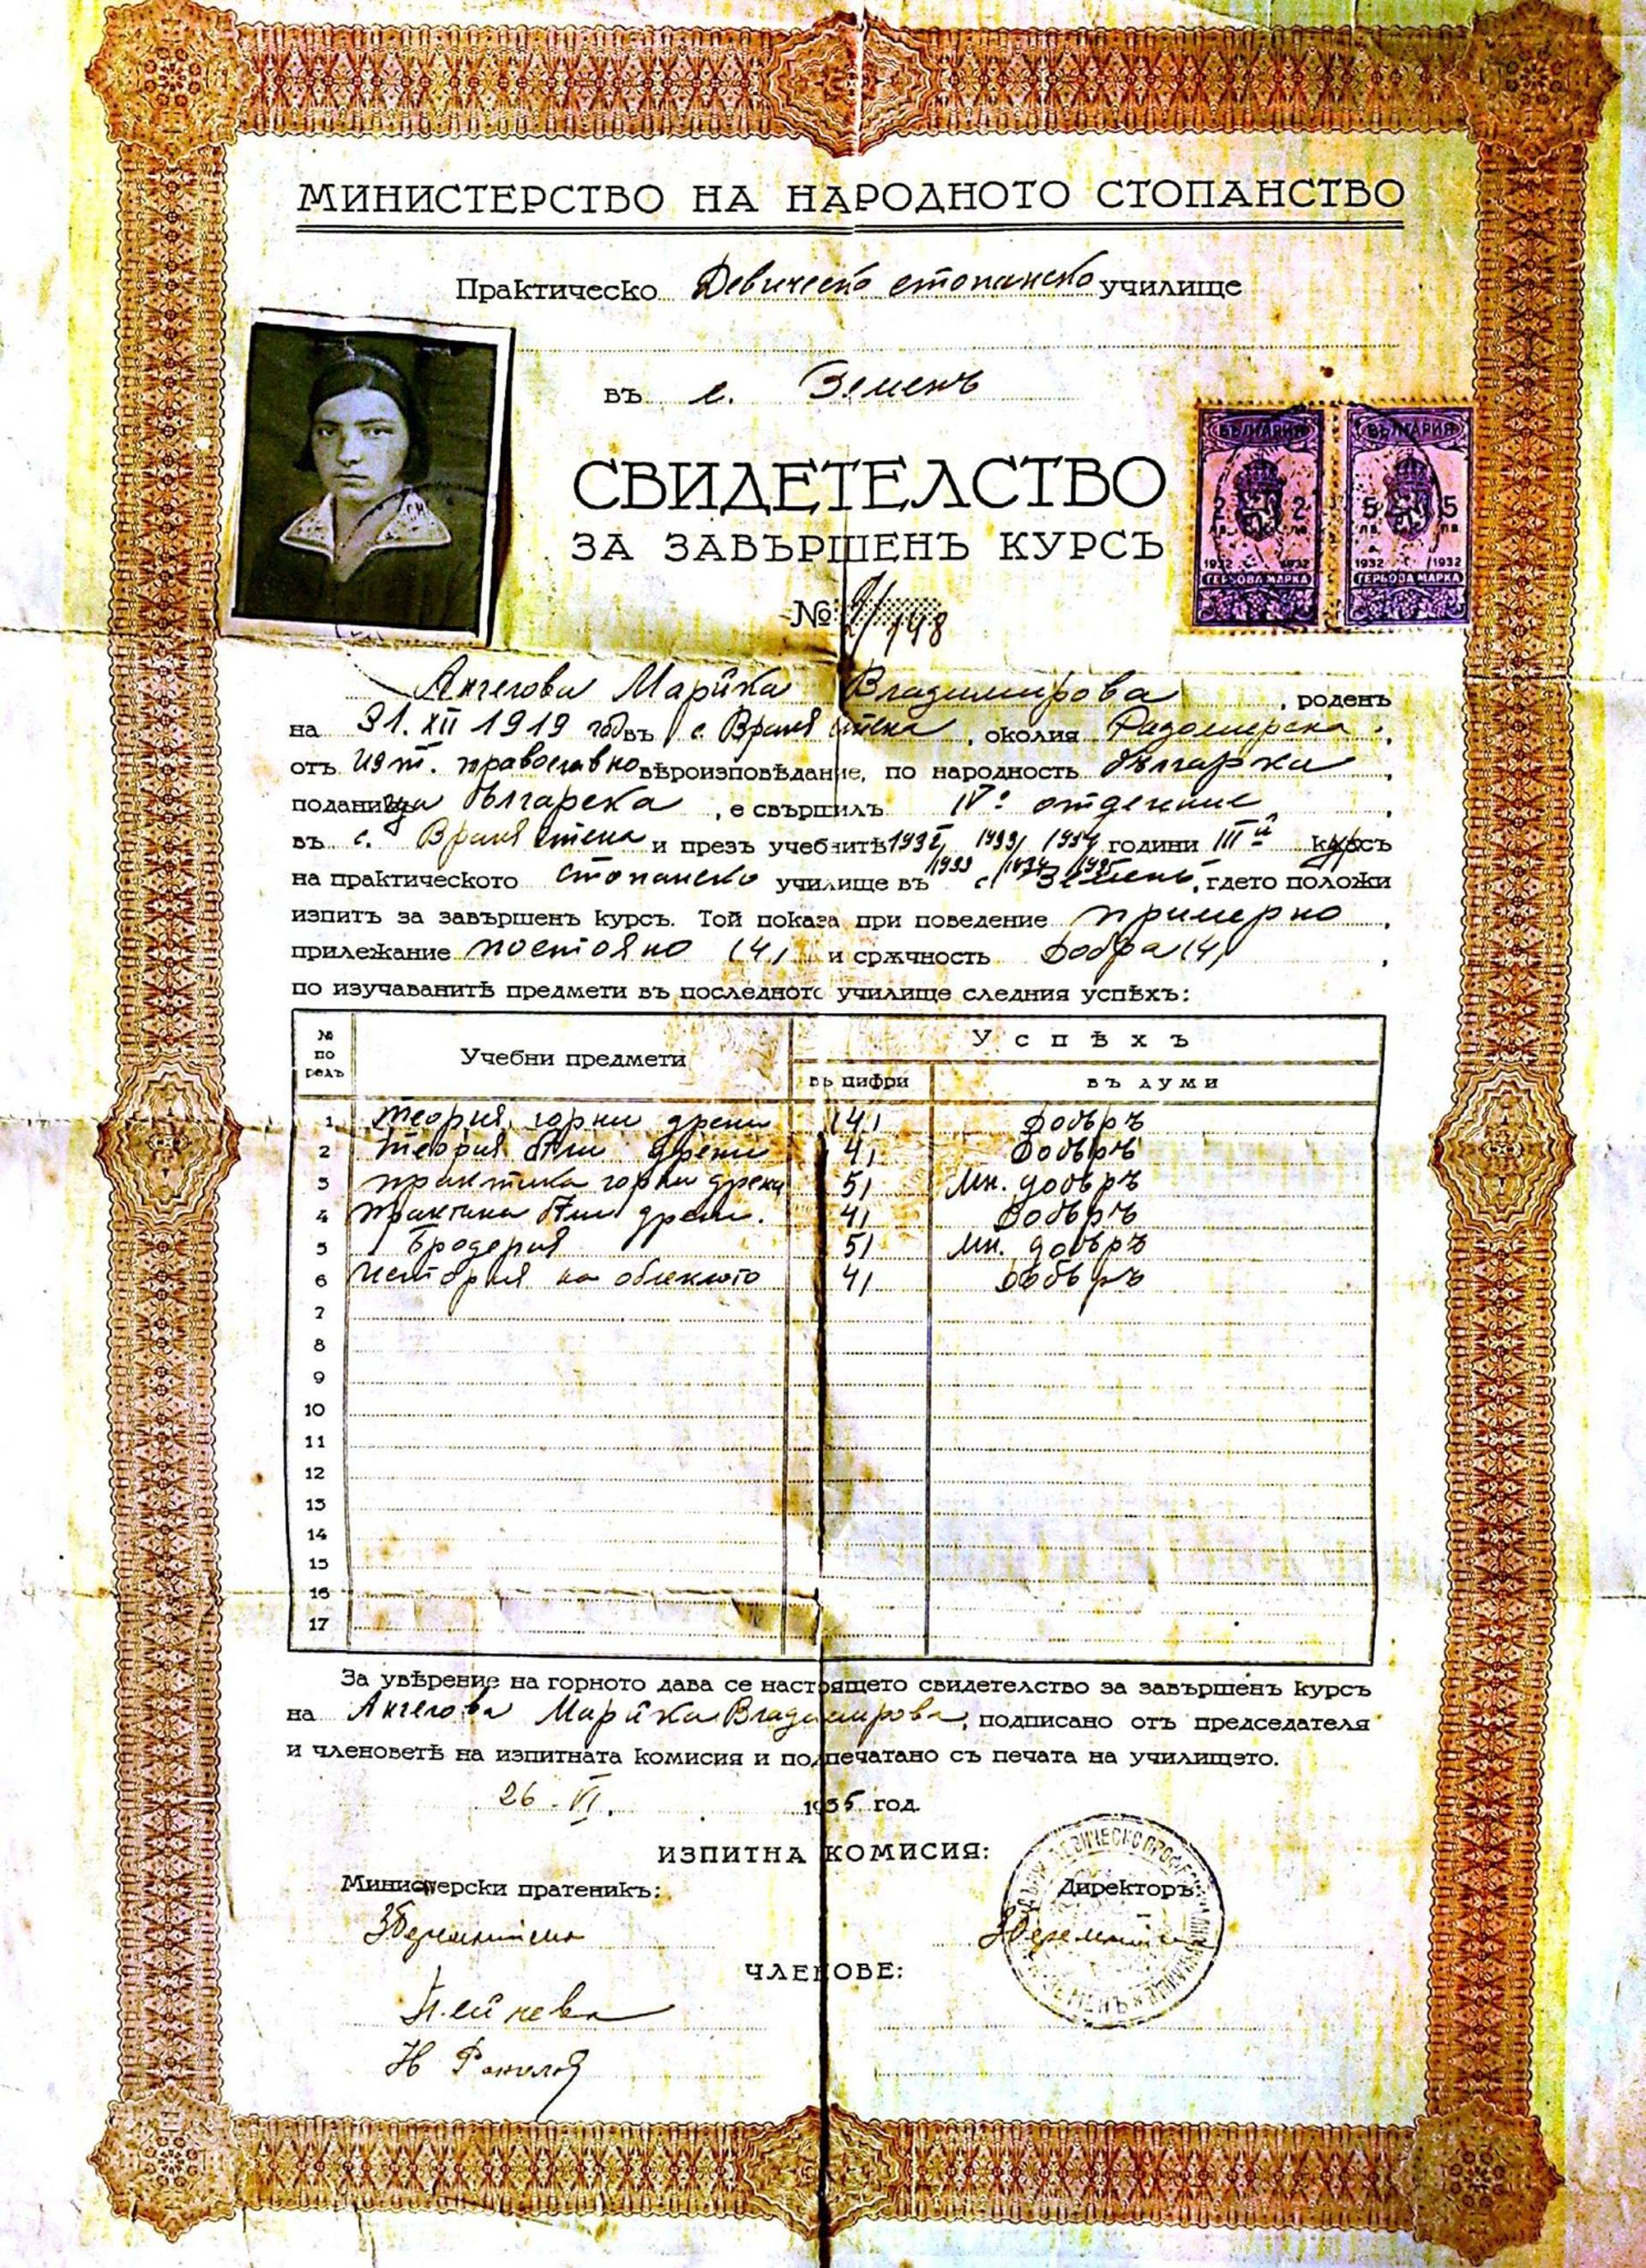 МИНИСТЕРСТВО НА НАРОДНОТО СТОПАНСТВО
Практическо Девическо стопанско училище
въ с. Земенъ
БЪЛГАРИЯ БЪЛГАРИЯ
2 2 5 5
лв. лв. лв. лв.
1932 1932 1932 1932
ГЕРБОВА МАРКА ГЕРБОВА МАРКА
СВИДЕТЕЛСТВО
ЗА ЗАВЪРШЕНЪ КУРСЪ
№ 2/148
Ангелова Марийка Владимирова, роденъ
на 31. XII 1919 год въ с. Враня стена, околия Радомирска,
отъ изт. православно вѣроизповѣдание, по народность българка,
българска, е свършилъ IV о отдѣление,
въ с. Враня стена и презъ учебнитѣ 1932/1933 1933/1934 1934/1935 години III й курсъ
на практическото стопанско училище въ с. Земенъ, гдето положи
изпитъ за завършенъ курсъ. Той показа при поведение примерно,
прилежание постояно (4) и срѫчность добра (4),
по изучаванитѣ предмети въ последното училище следния успѣхъ:
№ по редъ Учебни предмети Успѣхъ
въ цифри въ думи
1 теория, горни дрехи (4) добъръ
2 теория бели дрехи 4) добъръ
3 практика горни дрехи 5) мн. добъръ
4 практика бели дрехи. 4) добъръ
5 Бродерия 5) мн. добъръ
6 История на облеклото 4) добъръ
7
8
9
10
11
12
13
14
15
16
17
За увѣрение на горното дава се настоящето свидетелство за завършенъ курсъ
на Ангелова Марийка Владимирова, подписано отъ председателя
и членоветѣ на изпитната комисия и подпечатано съ печата на училището.
26. VI. 1935 год.
ИЗПИТНА КОМИСИЯ:
Министерски пратеникъ: Директоръ:
ЧЛЕНОВЕ:
Пейчева